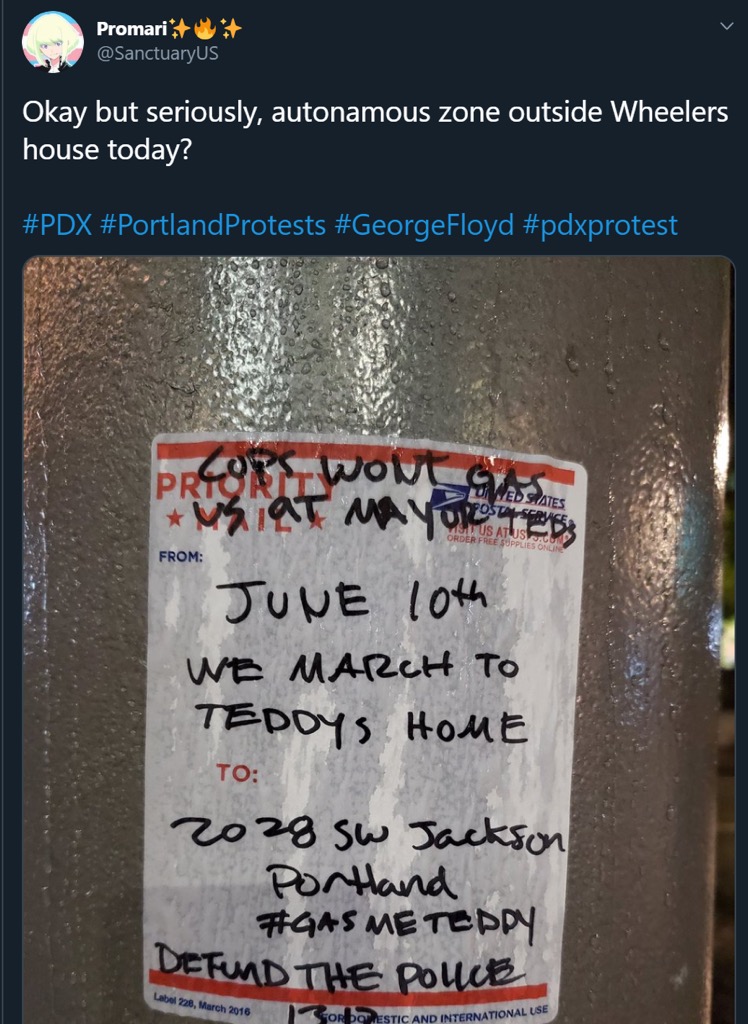 Promari✨🔥✨
@SanctuaryUS
Okay but seriously, autonamous zone outside Wheelers
house today?
#PDX #PortlandProtests #GeorgeFloyd #pdxprotest
COPS WONT GAS
PRIORITY
UNITED STATES
POSTAL SERVICE
US AT MAYOR TEDS
★ MAIL ★
VISIT US AT USPS.COM
ORDER FREE SUPPLIES ONLINE
FROM:
JUNE 10th
WE MARCH TO
TEDDYS HOME
TO:
2028 SW Jackson
Portland
#GASMETEDDY
DEFUND THE POLICE
Label 228, March 2016
1312
FOR DOMESTIC AND INTERNATIONAL USE